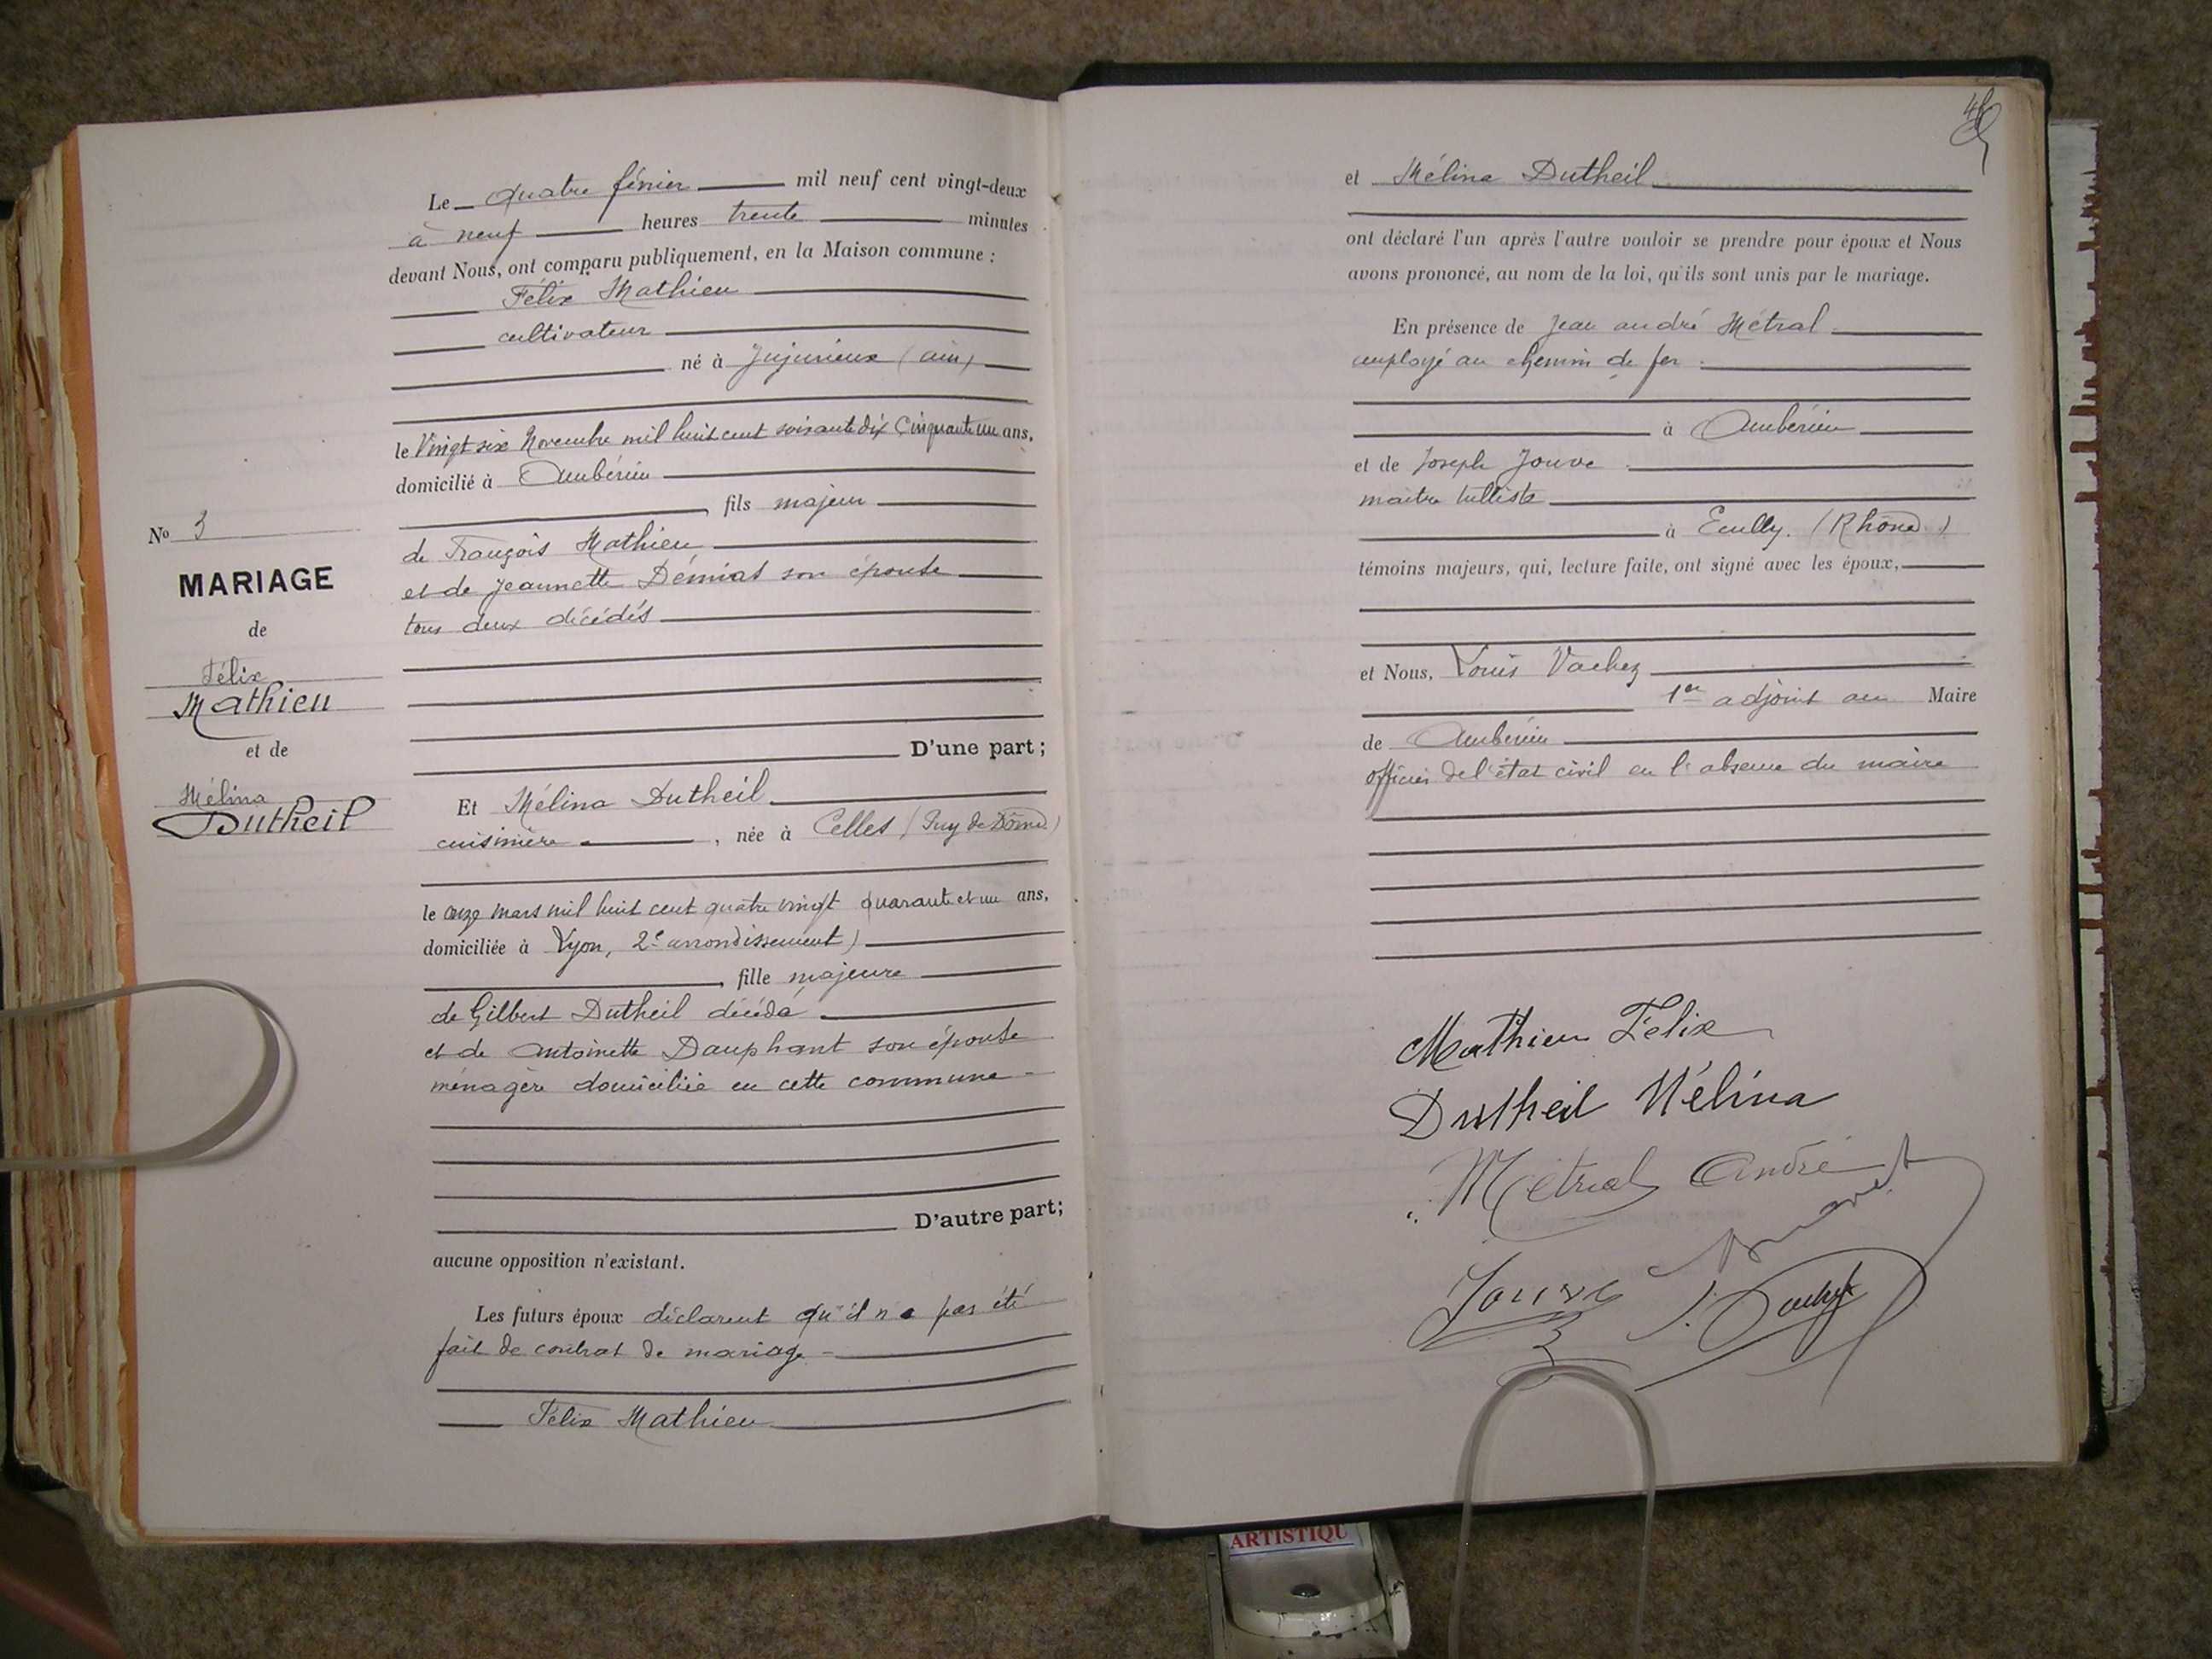 Le quatre février mil neuf cent vingt-deux
à neuf heures trente minutes
devant Nous, ont comparu publiquement, en la Maison commune :
Félix Mathieu
cultivateur
né à Jujurieux (ain)
le Vingt six Novembre mil huit cent soixante dix Cinquante un ans,
domicilié à Ambérieu
, fils majeur
de François Mathieu
et de Jeannette Démiat son épouse
tous deux décédés
D'une part ;
No 3
MARIAGE
de
Félix
Mathieu
et de
Mélina
Dutheil
Et Mélina Dutheil
cuisinière , née à Celles (Puy de Dôme)
le onze mars mil huit cent quatre vingt quarante et un ans,
domiciliée à Lyon, 2e arrondissement)
, fille majeure
de Gilbert Dutheil décédé
et de Antoinette Dauphant son épouse
ménagère domiciliée en cette commune
D'autre part;
aucune opposition n'existant.
Les futurs époux déclarent qu'il n'a pas été
fait de contrat de mariage
Félix Mathieu
et Mélina Dutheil
ont déclaré l'un après l'autre vouloir se prendre pour époux et Nous
avons prononcé, au nom de la loi, qu'ils sont unis par le mariage.
En présence de Jean andré Métral
employé au chemin de fer
à Ambérieu
et de Joseph Jouve
maitre tulliste
à Ecully. (Rhône.)
témoins majeurs, qui, lecture faite, ont signé avec les époux,
et Nous, Louis Vachez
1er adjoint au Maire
de Ambérieu
officier de l'état civil en l'absence du maire
Mathieu Félix
Dutheil Mélina
Métral André
Jouve
ARTISTIQU